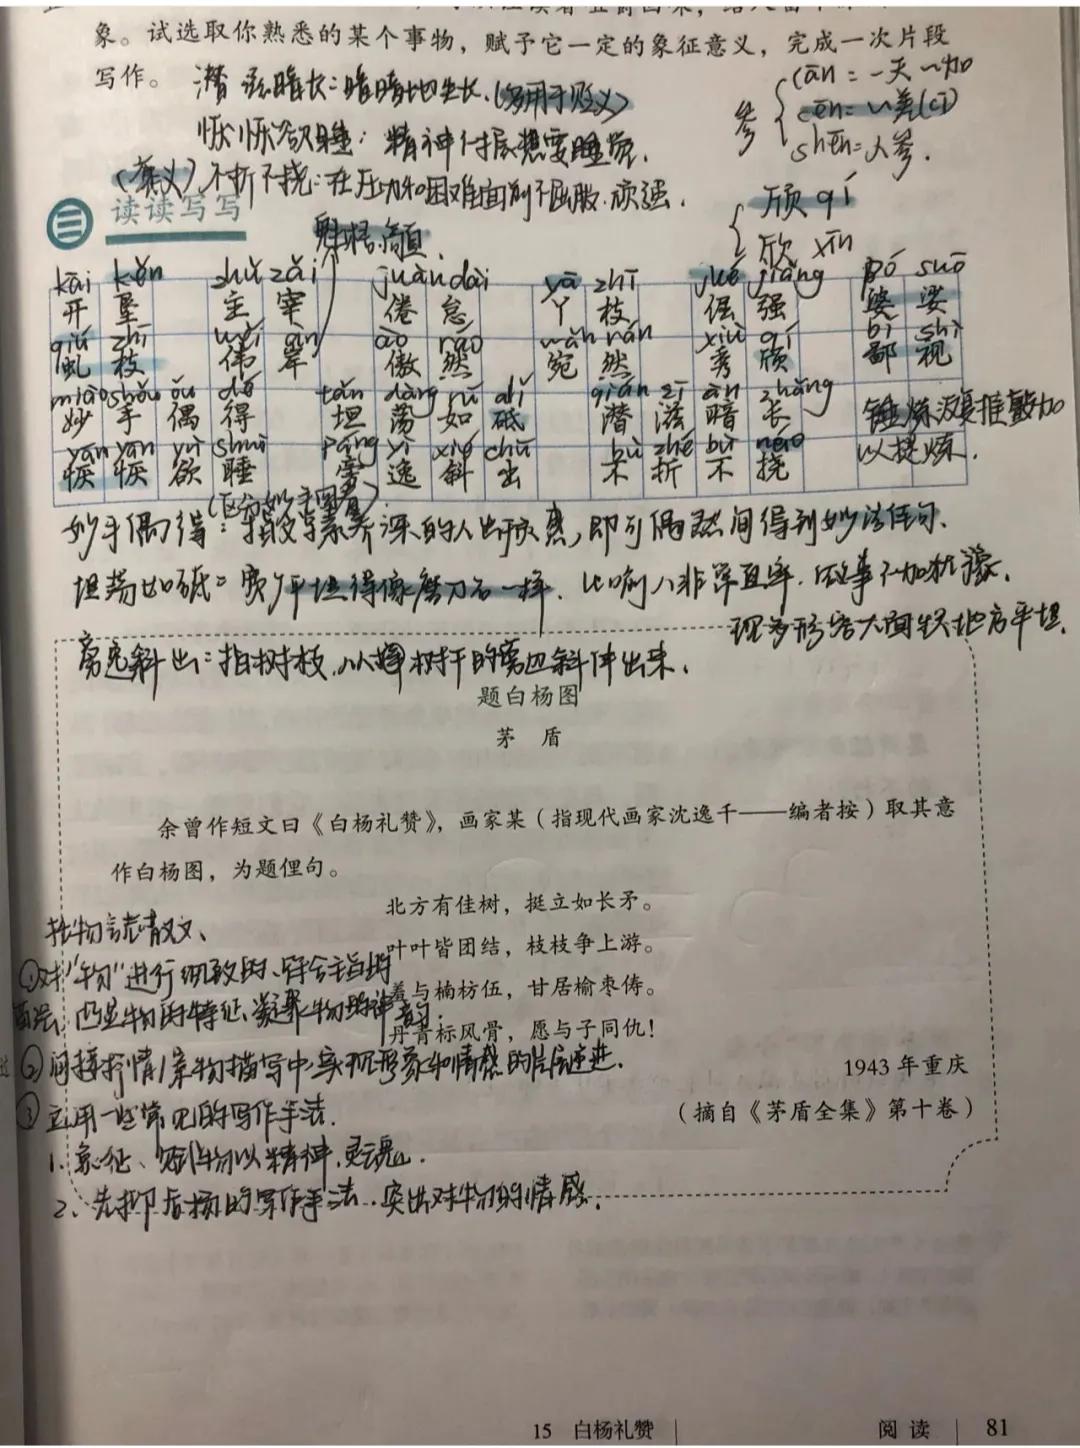 象。试选取你熟悉的某个事物，赋予它一定的象征意义，完成一次片段
写作。
潜滋暗长：暗暗地生长.(多用于贬义)
恹恹欲睡：精神 想要睡觉.
(褒义)不折不挠：在压力和困难面前不屈服.顽强.
参 cān=一天 参加
cēn=参差(cī)
shēn=人参.
颀 qí
欣 xīn
三 读读写写
魁梧.高直
kāi kěn zhǔ zǎi juàn dài yā zhī jué jiàng pó suō
开 垦 主 宰 倦 怠 丫 枝 倔 强 婆 娑
qiú zhī wěi àn ào rán wǎn rán xiù qí bǐ shì
虬 枝 伟 岸 傲 然 宛 然 秀 颀 鄙 视
miào shǒu ǒu dé tǎn dàng rú dǐ qián zī àn zhǎng
妙 手 偶 得 坦 荡 如 砥 潜 滋 暗 长
yān yān yù shuì páng yì xié chū bù zhé bù náo
恹 恹 欲 睡 旁 逸 斜 出 不 折 不 挠
锤炼.反复推敲加
以提炼.
(区分妙手回春)
妙手偶得：指文学素养深的人出于灵感,即可偶然间得到妙语佳句.
坦荡如砥=宽广平坦得像磨刀石一样.比喻人非常直率.做事不加犹豫.
现多形容大面积地方平坦.
旁逸斜出：指树枝.从 树干的旁边斜伸出来.
题白杨图
茅 盾
余曾作短文曰《白杨礼赞》，画家某（指现代画家沈逸千——编者按）取其意
作白杨图，为题俚句。
北方有佳树，挺立如长矛。
叶叶皆团结，枝枝争上游。
羞与楠枋伍，甘居榆枣俦。
丹青标风骨，愿与子同仇！
1943 年重庆
（摘自《茅盾全集》第十卷）
托物言志散文、
①对"物"进行细致的、符合主旨的
描绘,凸显物的特征、凝聚物的神韵.
②间接抒情/案物描写中实现形象和情感的层层递进.
③立用一些常见的写作手法.
1.象征、赋予物以精神,灵魂.
2、先抑后扬的写作手法..突出对物的情感.
15 白杨礼赞
阅 读 81